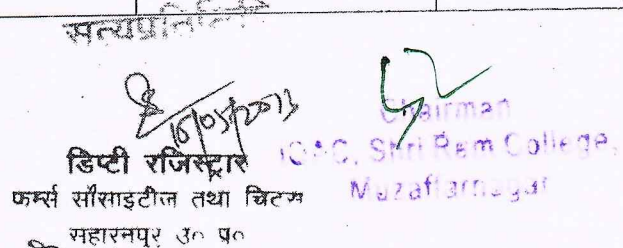 सत्यप्रतिलिपि
16/05/2013
डिप्टी रजिस्ट्रार
फर्म्स सौसाइटीज तथा चिटस
सहारनपुर उ० प्र०
Chairman
IQAC, Shri Ram College,
Muzaffarnagar